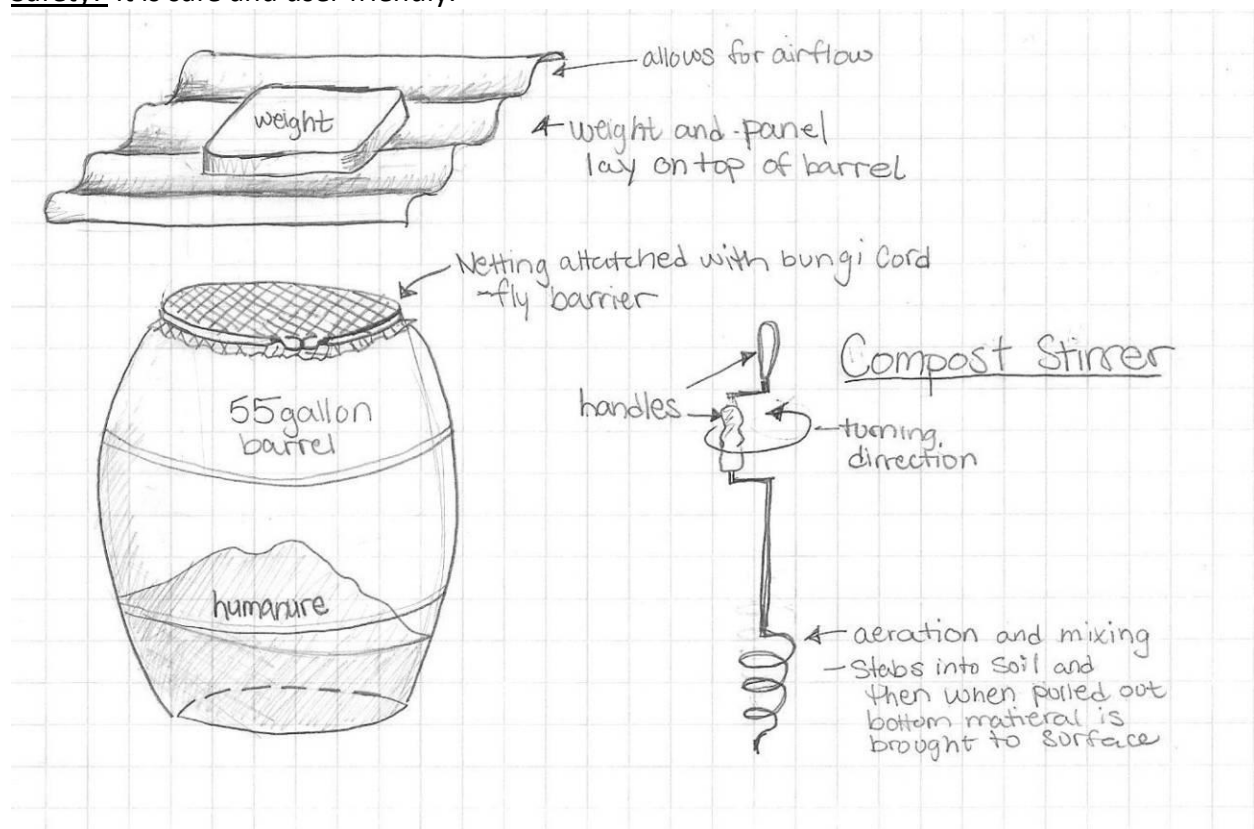 Safety: It is safe and user friendly.
allows for airflow
weight
weight and panel
lay on top of barrel
Netting attatched with bungi Cord
-fly barrier
55 gallon
barrel
humanure
Compost Stirrer
handles
turning
dirrection
aeration and mixing
- Stabs into soil and
then when pulled out
bottom matieral is
brought to surface